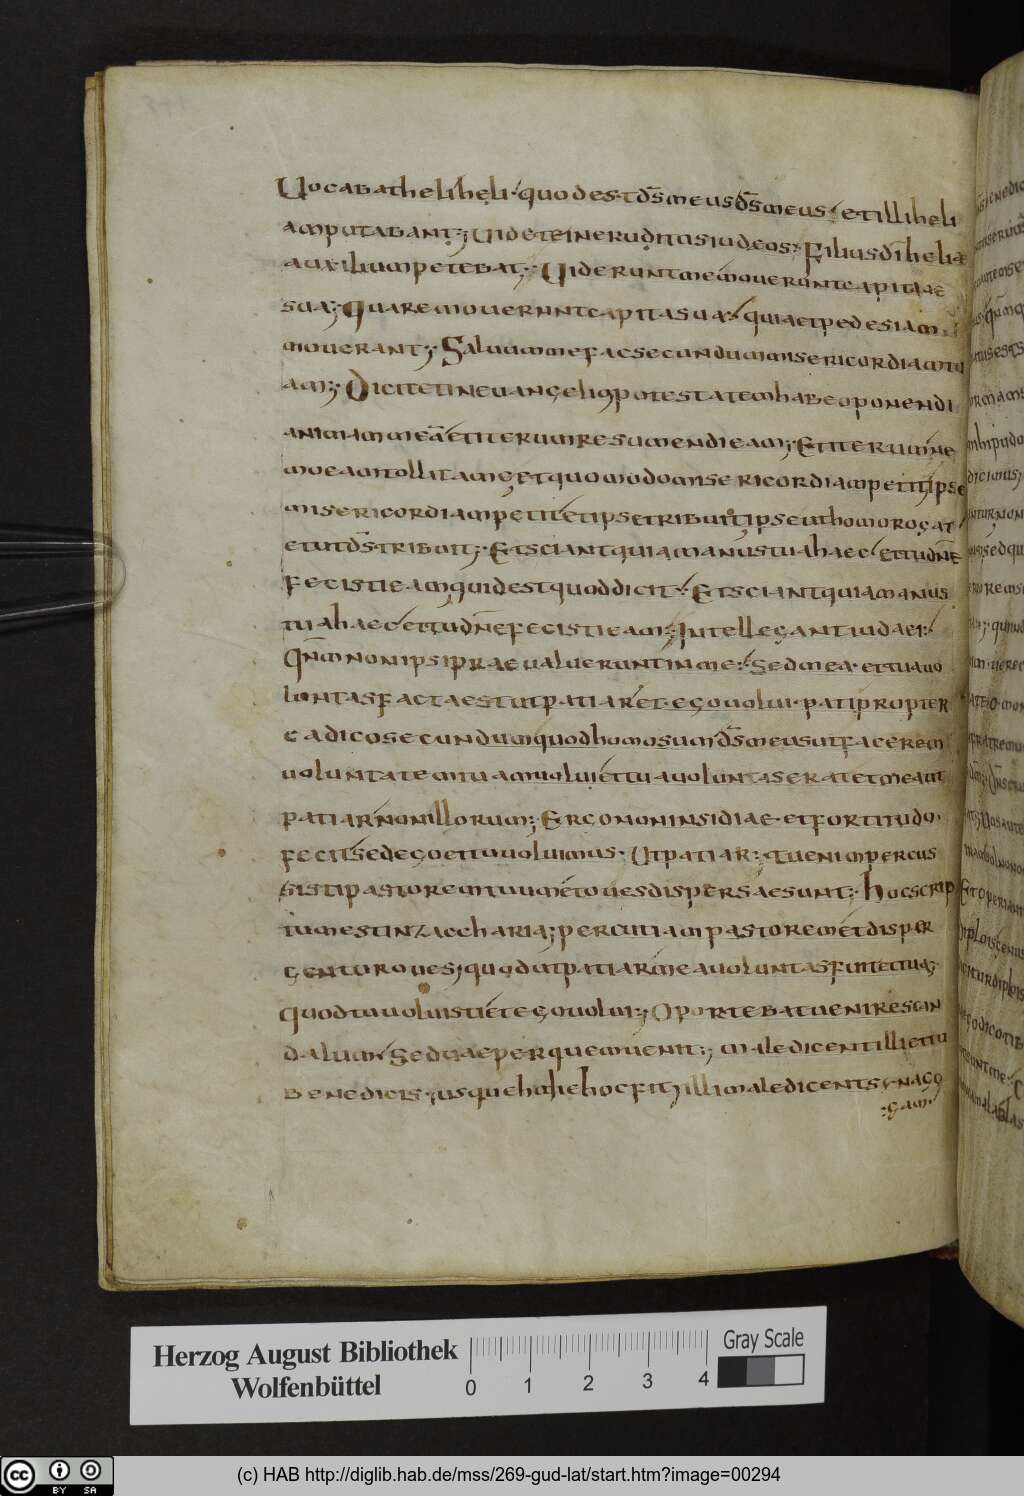 Uocabat heli heli quod est ds meus ds meus et illi heli
amputabant; Uidete ineruditus iudeos; Filius di helia
auxilium petebat; Uiderunt me mouerunt capita
sua; Quare mouerunt capita sua quia et pedes iam
mouerant; Saluum me fac secundum misericordiam tu
am; Dicit et in euangelio potestatem habeo ponendi
animam meā et iterum resumendi eam; Et iterum ne
mo eam tollit a me; et quomodo misericordiam petit ipse
misericordiam petit et ipse tribuit ipse ut homo rogat
et ut ds tribuit; Et sciant quia manus tua haec et tu dne
fecisti eam quid est quod dicit Et sciant quia manus
tua haec et tu dne fecisti eam; Intellegant iudaei
Qnm non ipsi praeualuerunt in me sed mea et tua uo
luntas facta est ut patiar et ego uolui pati propter
ea dico secundum quod homo sum ds meus ut facerem
uoluntatem tuam uolui et tua uoluntas erat et mea ut
patiar non illorum; Ergo non insidiae et fortitudo
fecit sed ego et tu uoluimus Ut patiar tu enim percus
sisti pastorem tuum et oues dispersae sunt; hoc scrip
tum est in zaccharia; percutiam pastorem et disper
gentur oues; quod ut patiar mea uoluntas fuit et tua;
quod tu uoluisti et ego uolui; Oportebat uenire scan
dalum sed uae per quem uenit; maledicent illi et tu
benedicis usque hodie hoc fit; illi maledicent synago
gam
Herzog August Bibliothek
Wolfenbüttel
0 1 2 3 4
Gray Scale
cc BY SA
(c) HAB http://diglib.hab.de/mss/269-gud-lat/start.htm?image=00294